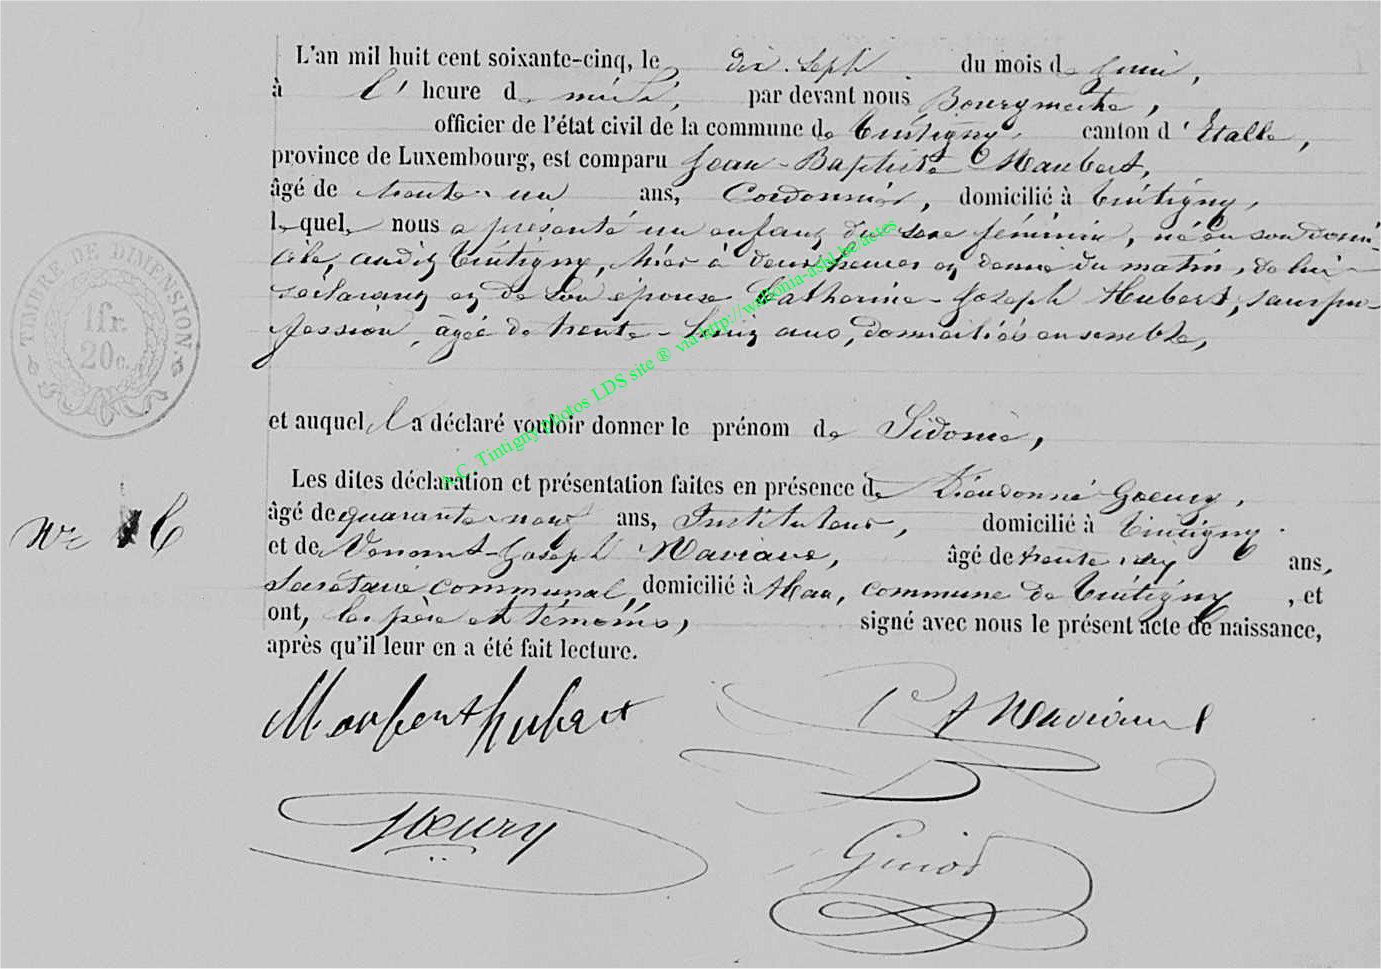 L'an mil huit cent soixante-cinq, le dix-sept du mois de Juin,
à l'heure de midi, par devant nous Bourgmestre,
officier de l'état civil de la commune de Tintigny, canton d'Etalle,
province de Luxembourg, est comparu Jean-Baptiste Maubert,
âgé de trente-un ans, Cordonnier, domicilié à Tintigny,
lequel, nous a présenté un enfant du sexe féminin, né en son domi-
cile, audit Tintigny, hier à deux heures et demie du matin, de lui
déclarant et de son épouse Catherine-Joseph Hubert, sans pro-
fession, âgée de trente-huit ans, domiciliés ensemble,
et auquel il a déclaré vouloir donner le prénom de Sidonie,
Les dites déclaration et présentation faites en présence de Dieudonné Goeury,
âgé de quarante-neuf ans, Instituteur, domicilié à Tintigny.
et de Venant-Joseph Maviane, âgé de trente ans,
Secrétaire communal, domicilié à Han, commune de Tintigny, et
ont, les père et témoins, signé avec nous le présent acte de naissance,
après qu'il leur en a été fait lecture.
Maubert hubert
Goeury
Guiot
TIMBRE DE DIMENSION.
1 fr.
20 c.
A.C. Tintigny photos LDS site ® via http://wallonia-asbl.be/actes